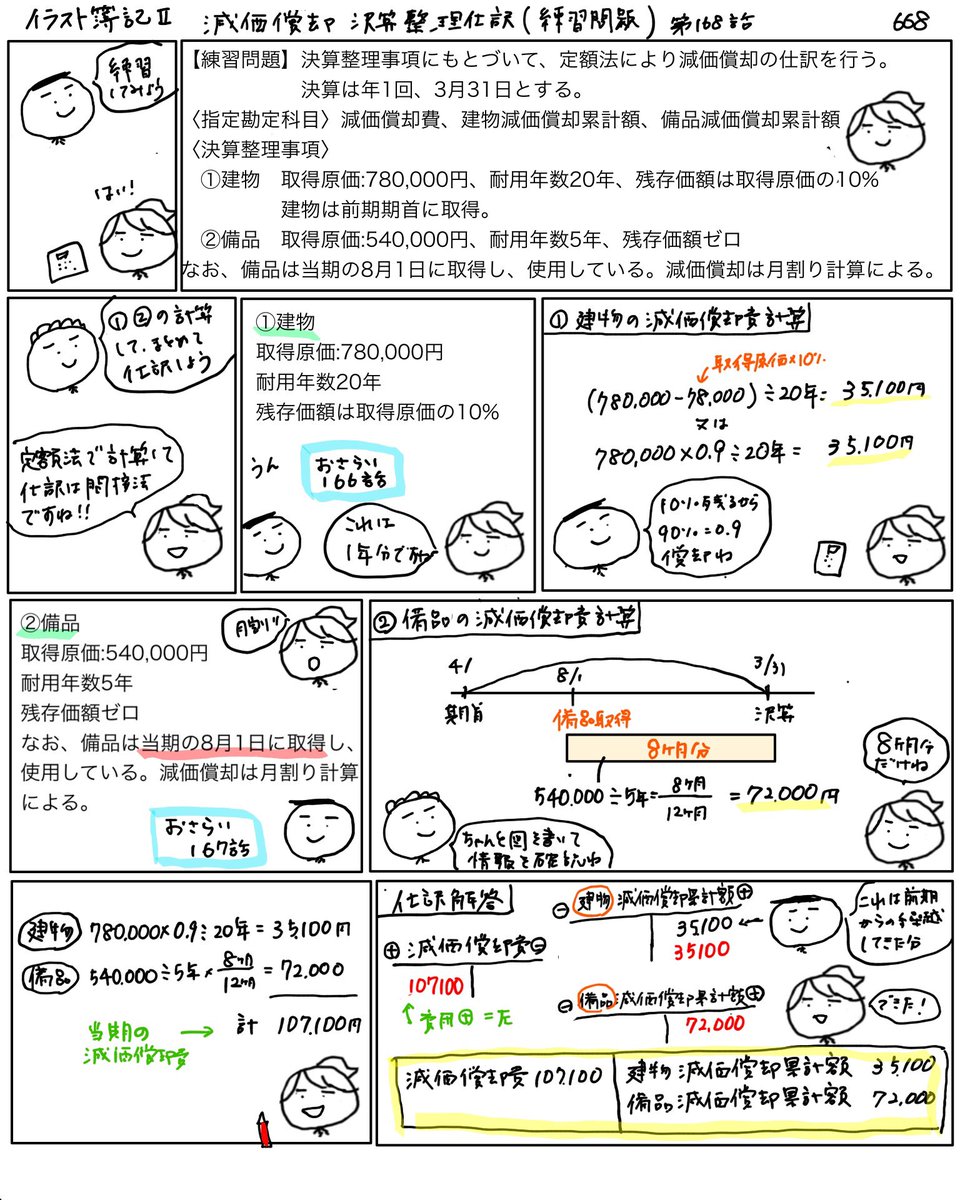 イラスト簿記Ⅱ 減価償却 決算整理仕訳(練習問題) 第168話 668
練習
してみよう
はい!
【練習問題】決算整理事項にもとづいて、定額法により減価償却の仕訳を行う。
決算は年1回、3月31日とする。
〈指定勘定科目〉減価償却費、建物減価償却累計額、備品減価償却累計額
〈決算整理事項〉
①建物 取得原価:780,000円、耐用年数20年、残存価額は取得原価の10%
建物は前期期首に取得。
②備品 取得原価:540,000円、耐用年数5年、残存価額ゼロ
なお、備品は当期の8月1日に取得し、使用している。減価償却は月割り計算による。
①②の計算
して、まとめて
仕訳しよう
定額法で計算して
仕訳は間接法
ですね!!
①建物
取得原価:780,000円
耐用年数20年
残存価額は取得原価の10%
うん
おさらい
166話
これは
1年分ですね
①建物の減価償却費計算
取得原価×10%
(780,000-78,000)÷20年= 35,100円
又は
780,000×0.9÷20年= 35,100円
10%残るから
90%=0.9
償却ね
②備品
取得原価:540,000円
耐用年数5年
残存価額ゼロ
なお、備品は当期の8月1日に取得し、
使用している。減価償却は月割り計算
による。
月割り!
おさらい
167話
②備品の減価償却費計算
4/1 8/1 3/31
期首 備品取得 決算
8ヶ月分
540,000÷5年= 8ヶ月/12ヶ月 =72,000円
8ヶ月分
だけね
ちゃんと図を書いて
情報を確認ね
建物 780,000×0.9÷20年=35,100円
備品 540,000÷5年×8ヶ月/12ヶ月=72,000
計 107,100円
当期の → 
減価償却費
仕訳解答
⊖ 建物減価償却累計額 ⊕
35,100 ←
35100
これは前期
からの繰越
してきた分
⊕ 減価償却費 ⊖
107100
↑費用⊕=左
⊖ 備品減価償却累計額 ⊕
72,000
できた!
減価償却費 107100 建物減価償却累計額 35,100
備品減価償却累計額 72,000